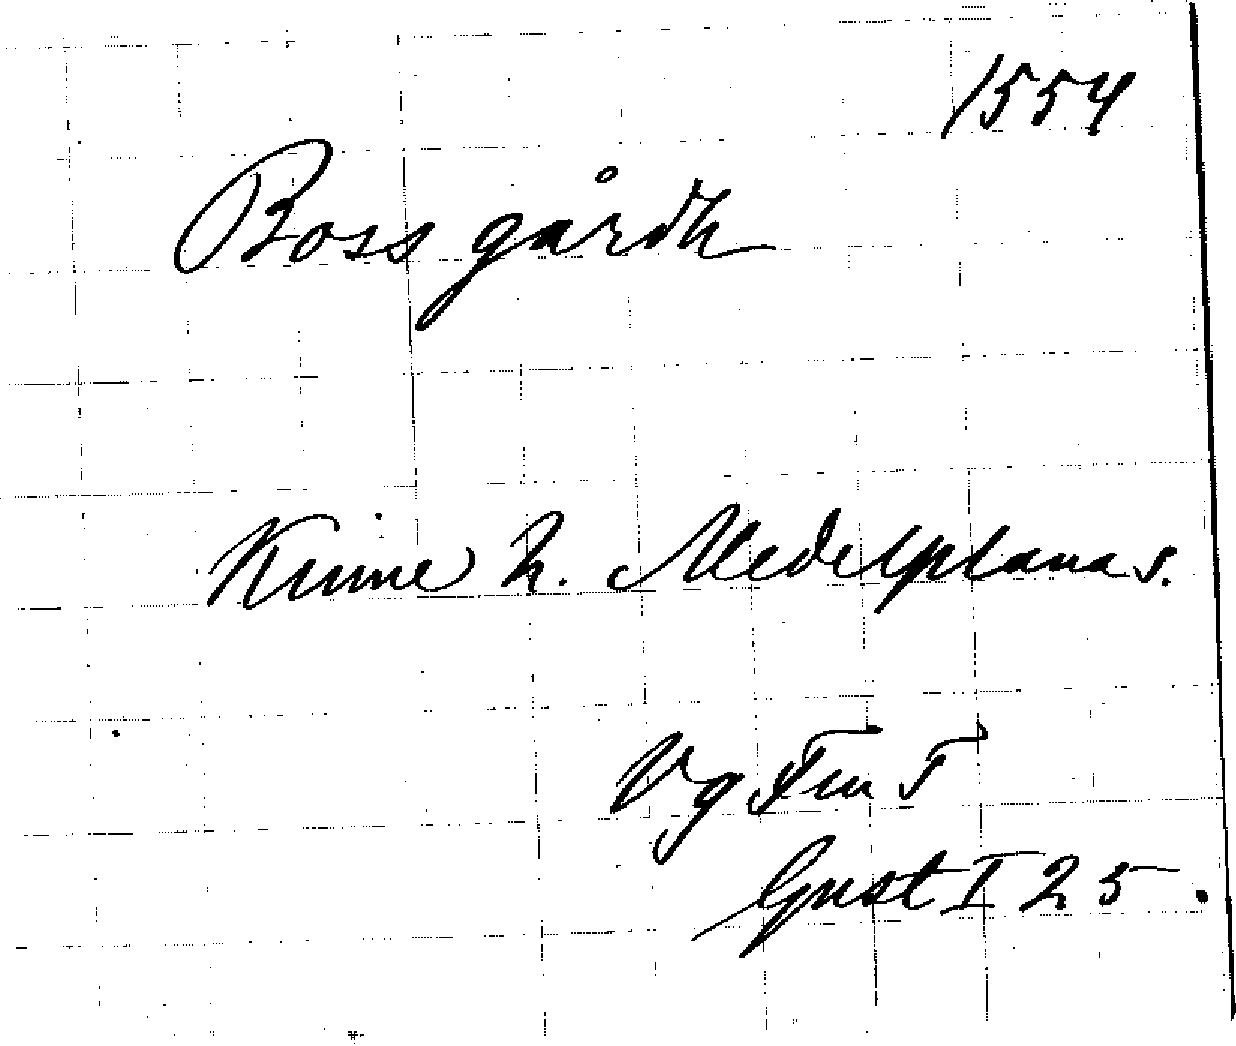 1554
Bossgårdh
Kinne h. Medelplana s.
Vg Fru 5
Gust I 25.